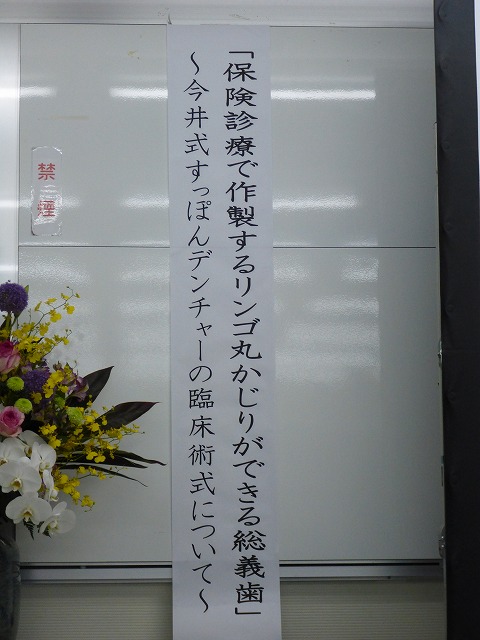 「保険診療で作製するリンゴ丸かじりができる総義歯」
～今井式すっぽんデンチャーの臨床術式について～
禁煙